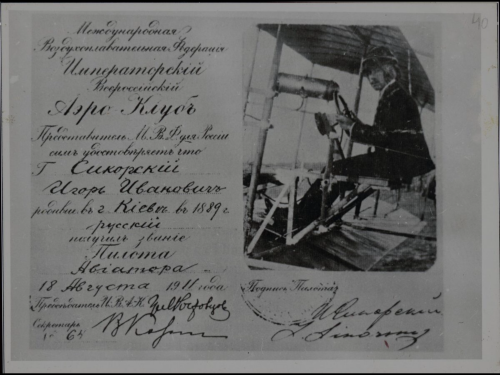 Международная
Воздухоплавательная Федерация
Императорскій
Всероссійскій
Аэро Клубъ
Представитель М.В.Ф. для Россіи
симъ удостовѣряетъ что
Г Сикорскій
Игорь Ивановичъ
родивш. въ г. Кіевѣ въ 1889 г.
русскій
получилъ званіе
Пилота
Авіатора
18 Августа 1911 года
Предсѣдатель И.В.А.К.
Секретарь
№ 64
Подпись Пилота
И Сикорскій
40